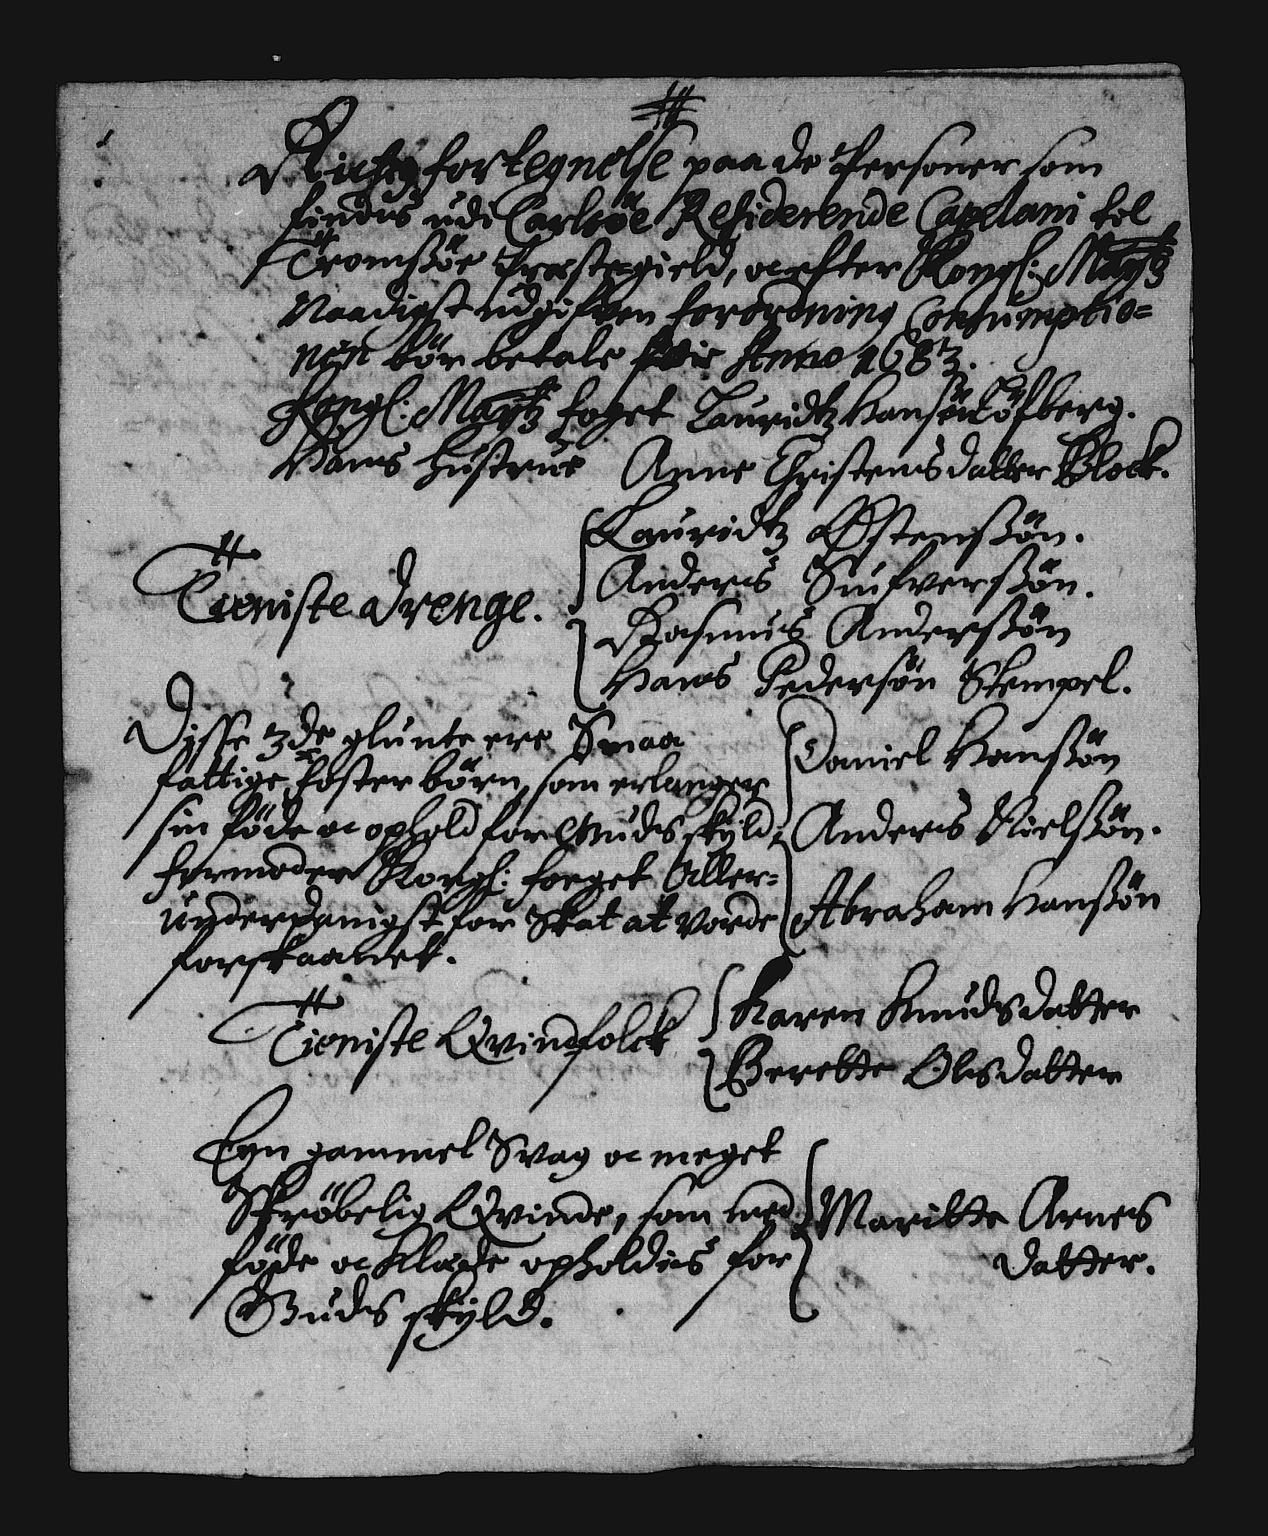 Richtig fortegnelse paa de Personer som
findis udi Carlsöe Residerende Capelani til
Tromsöe Præstegield, oc efter Kongl: Maytz
Naadigst udgifven forordning Consumptio=
nen bör betale Anno 1683.
Kongl: Maytz foget Lauridtz Hansön Löfberg.
Hans hustrue Anne Christensdatter Block.
Tieniste drenge.
Lauridtz Östensßön.
Anders Siufversßön.
Rasmus Andersßön
Hans Pedersön Stempel.
Disse 3de glunte ere Smaa
fattige foster börn, som erlanger
sin föde oc ophold for Guds skyld,
formoder Kongl: foeget Aller=
underdanigst for Skat at vorde
forskaanet.
Daniel Hansßön
Anders Nielsßön.
Abraham Hansßön
Tieniste Qvindfolck
Karen Knudsdatter
Berette Olsdatter
Een gammel Svag oc meget
Skröbelig Qvinde, som med
föde oc Klæde opholdis for
Guds skyld.
Maritte Arnes
datter.